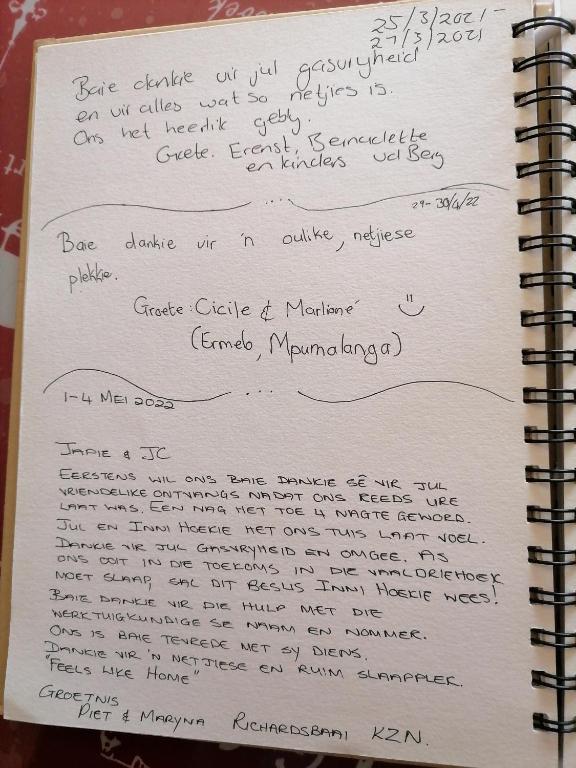 25/3/2021-
27/3/2021
Baie dankie vir jul gasvryheid
en vir alles wat so netjies is.
Ons het heerlik gebly.
Groete. Erenst, Bernadette
en kinders vd Berg
29-30/4/22
Baie dankie vir 'n oulike, netjiese
plekkie.
Groete: Cicile & Marliané
(Ermelo, Mpumalanga)
1-4 MEI 2022
JAPIE & JC
EERSTENS WIL ONS BAIE DANKIE SÊ VIR JUL
VRIENDELIKE ONTVANGS NADAT ONS REEDS URE
LAAT WAS. EEN NAG HET TOE 4 NAGTE GEWORD.
JUL EN INNI HOEKIE HET ONS TUIS LAAT VOEL.
DANKIE VIR JUL GASVRYHEID EN OMGEE. AS
ONS OOIT IN DIE TOEKOMS IN DIE VAALDRIEHOEK
MOET SLAAP, SAL DIT BESLIS INNI HOEKIE WEES!
BAIE DANKIE VIR DIE HULP MET DIE
WERKTUIGKUNDIGE SE NAAM EN NOMMER.
ONS IS BAIE TEVREDE MET SY DIENS.
DANKIE VIR 'N NETJIESE EN RUIM SLAAPPLEK.
"FEELS LIKE HOME"
GROETNIS
PIET & MARYNA RICHARDSBAAI KZN.